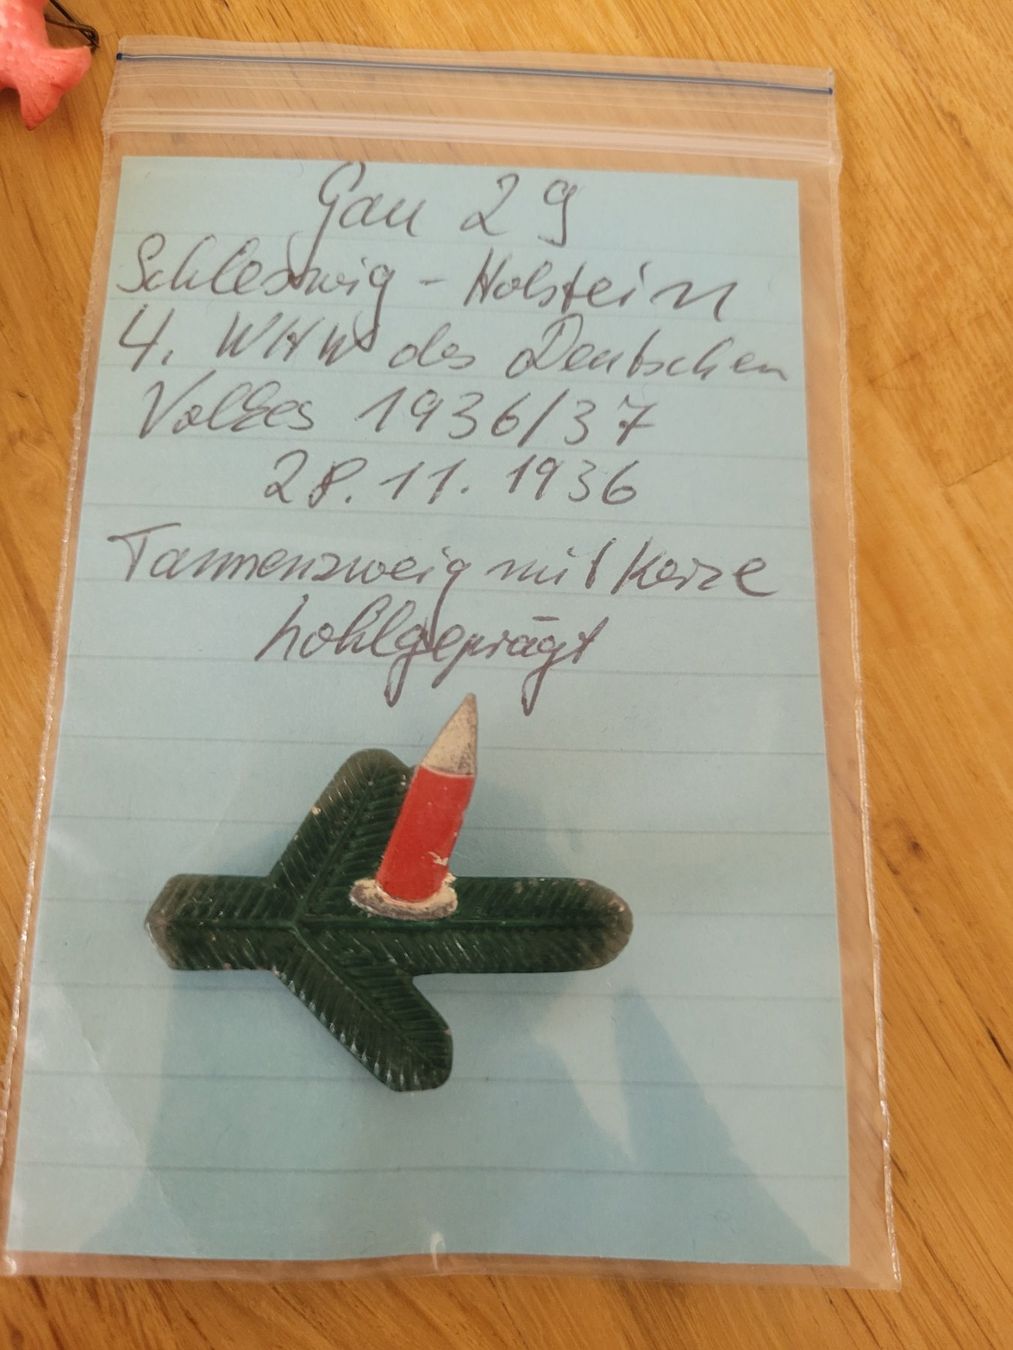 Gau 29
Schleswig-Holstein
4. WHW des Deutschen
Volkes 1936/37
28.11.1936
Tannenzweig mit Kerze
hohlgeprägt